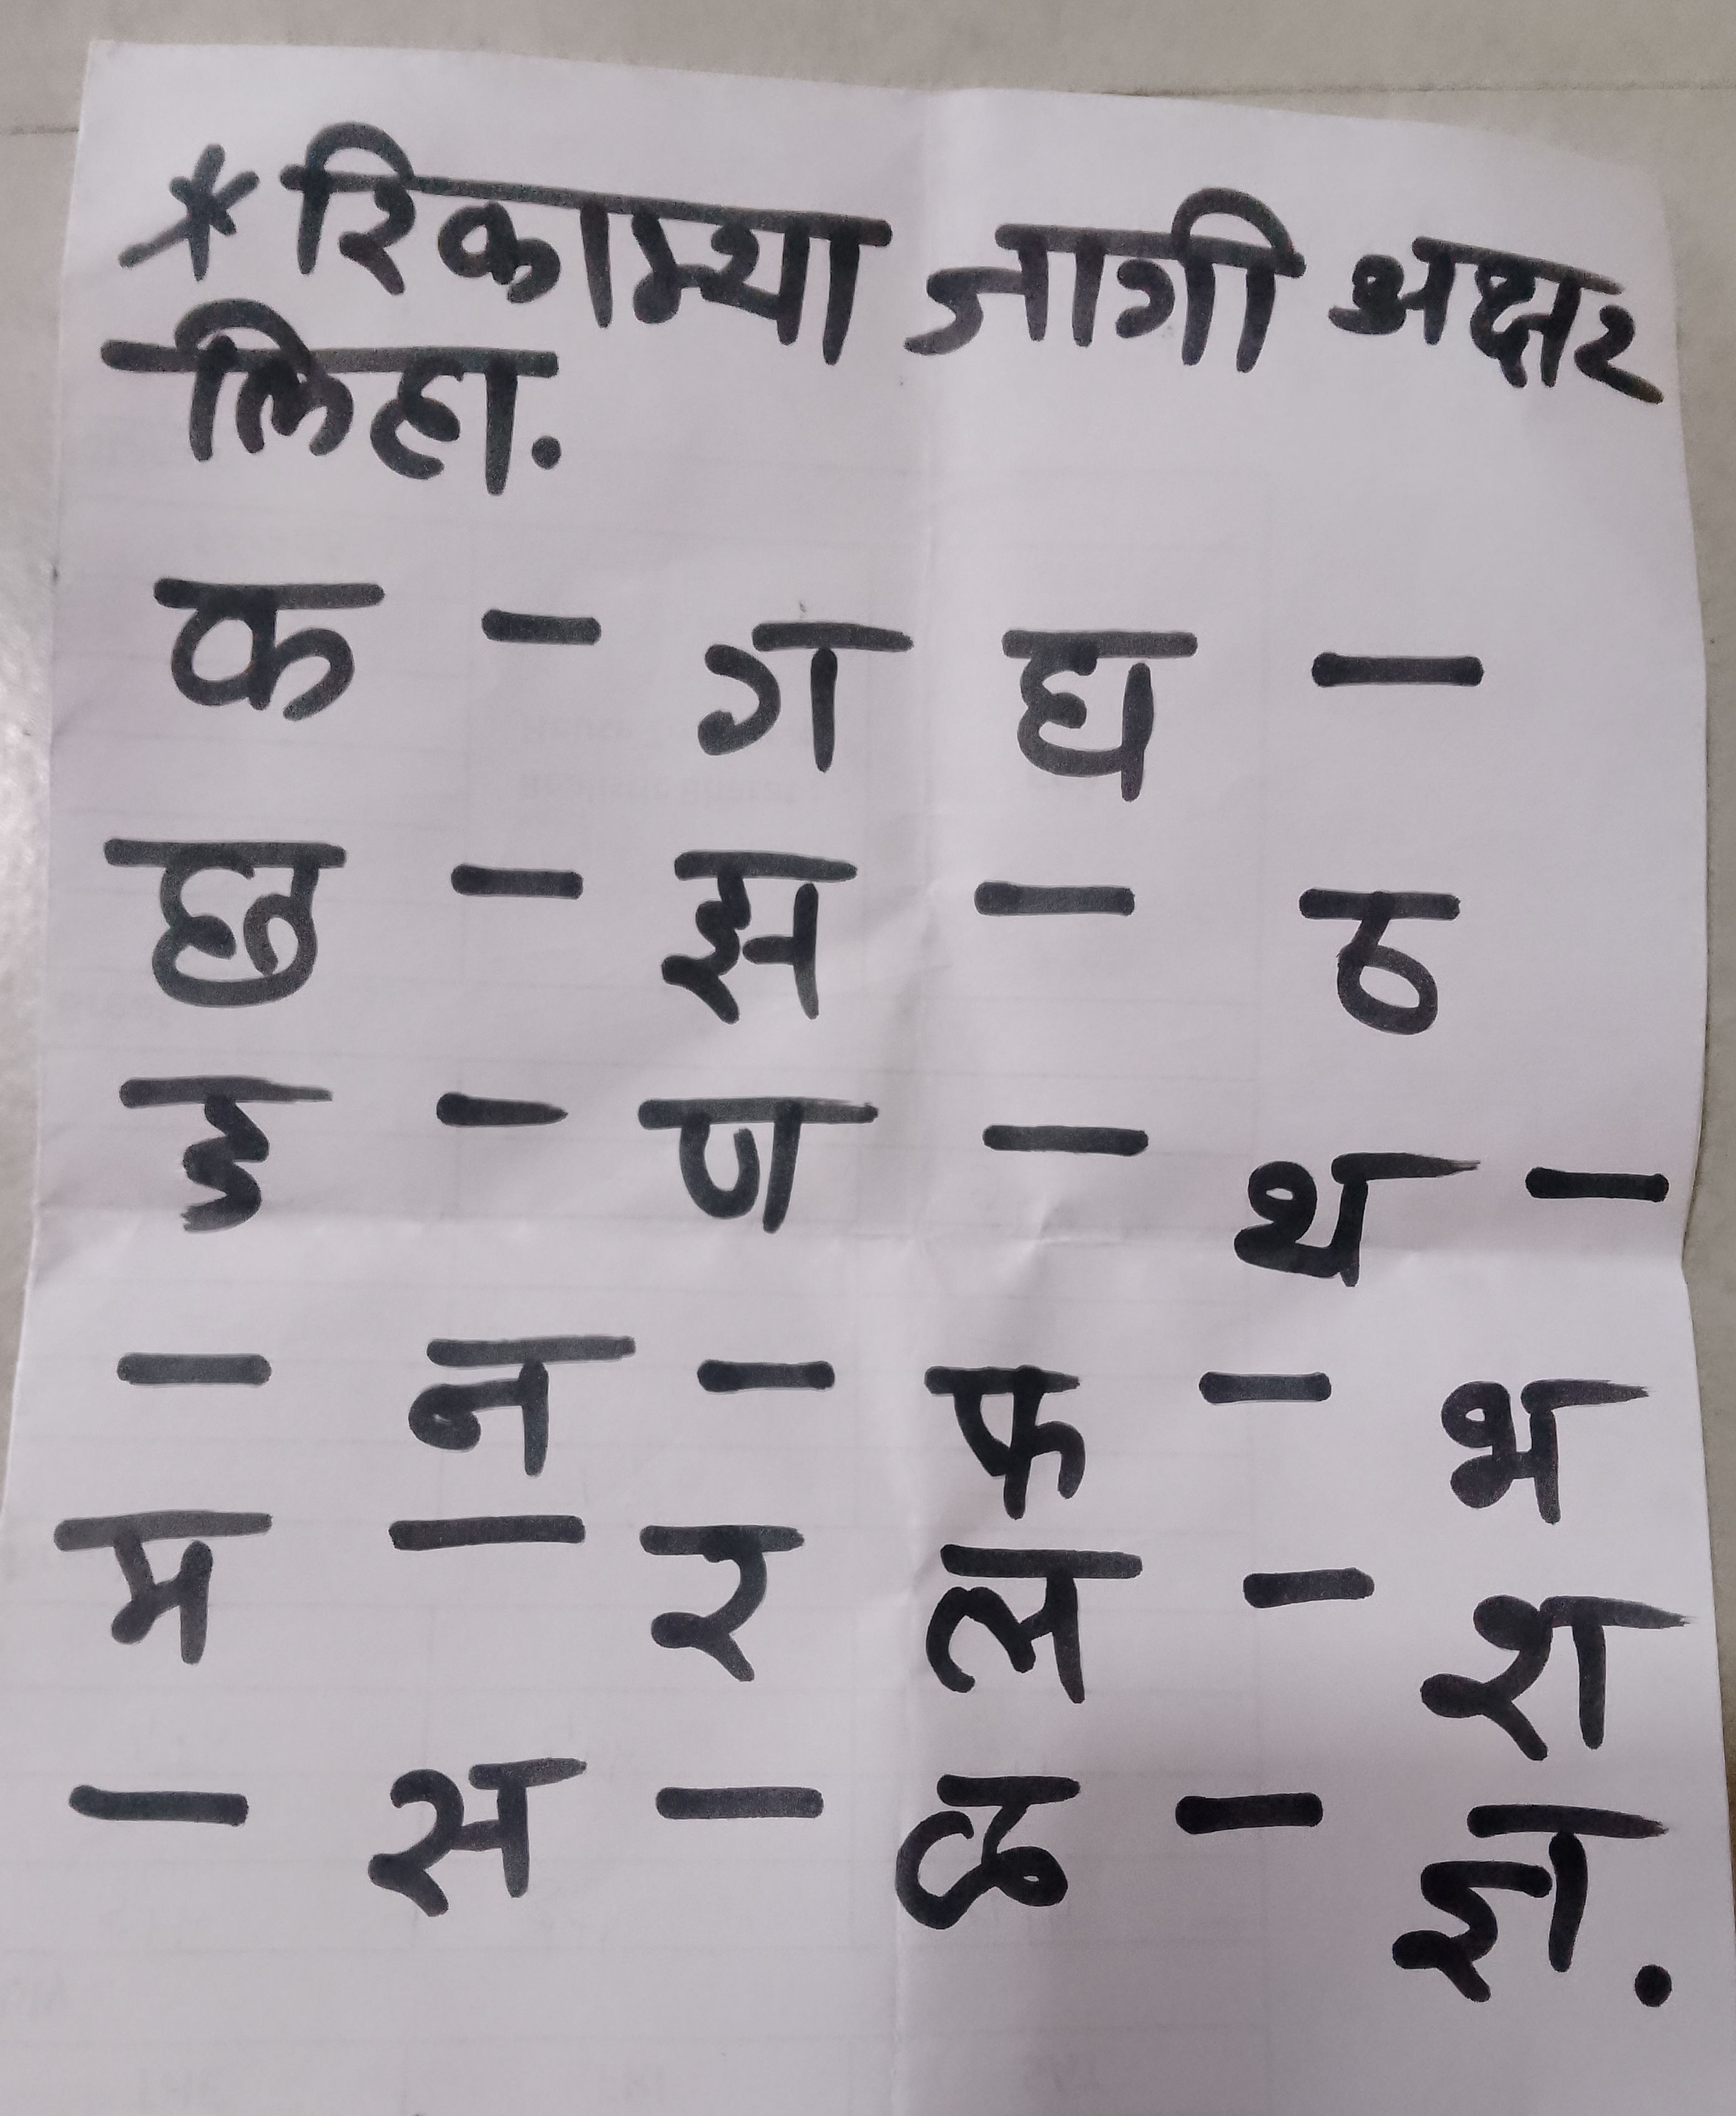 * रिकाम्या जागी अक्षर
लिहा.
क - ग घ -
छ - झ - ठ
ड - ण - थ -
- न - फ - भ
म - र ल - श
- स - ळ - ज्ञ.